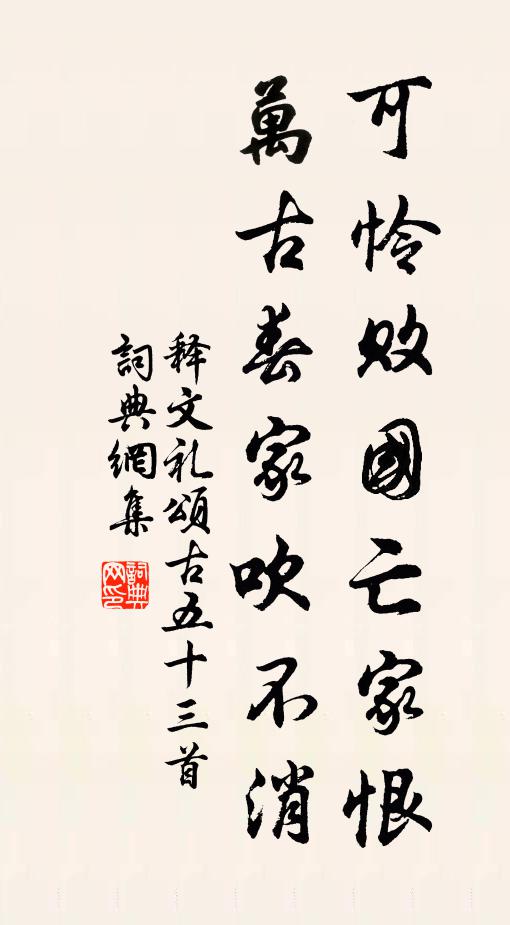 可怜败國亡家恨
萬古春家吹不消
释文礼頌古五十三首
詞典網集
詞典网印